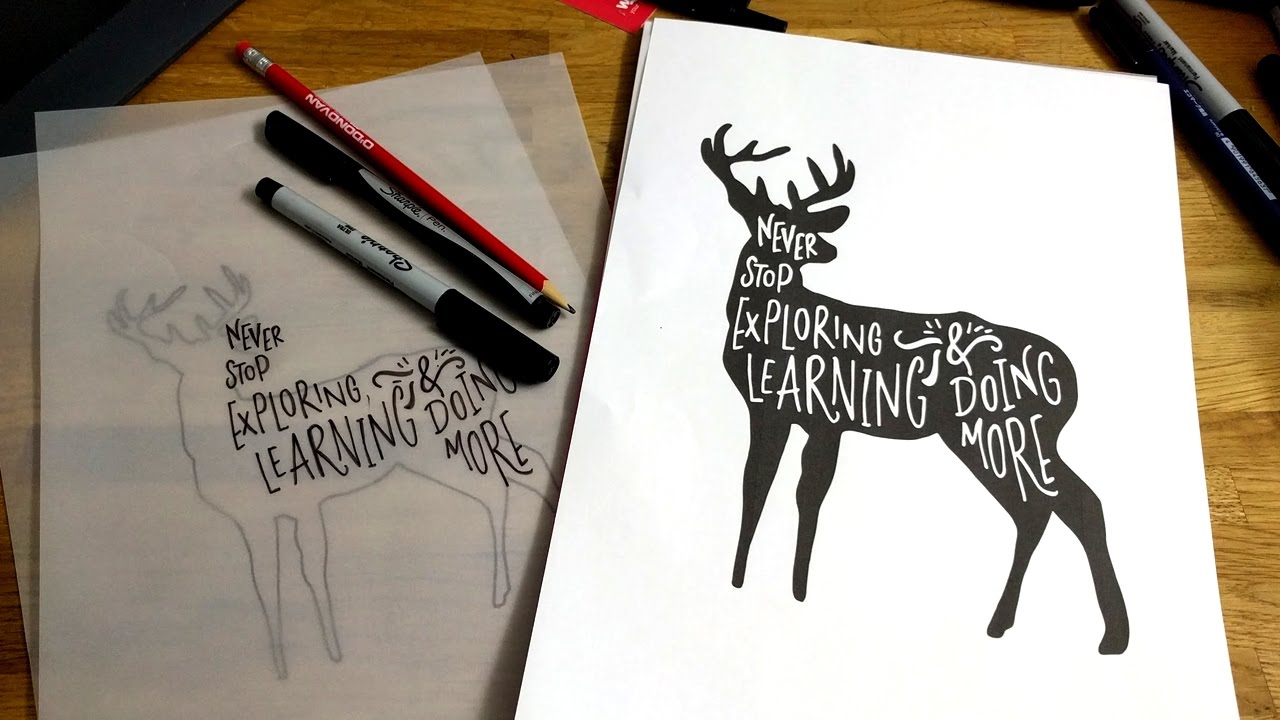 O'DONOVAN
Sharpie. Pen.
Sharpie
NEVER
STOP
EXPLORING, &
LEARNING DOING
MORE
NEVER
STOP
EXPLORING &
LEARNING DOING
MORE